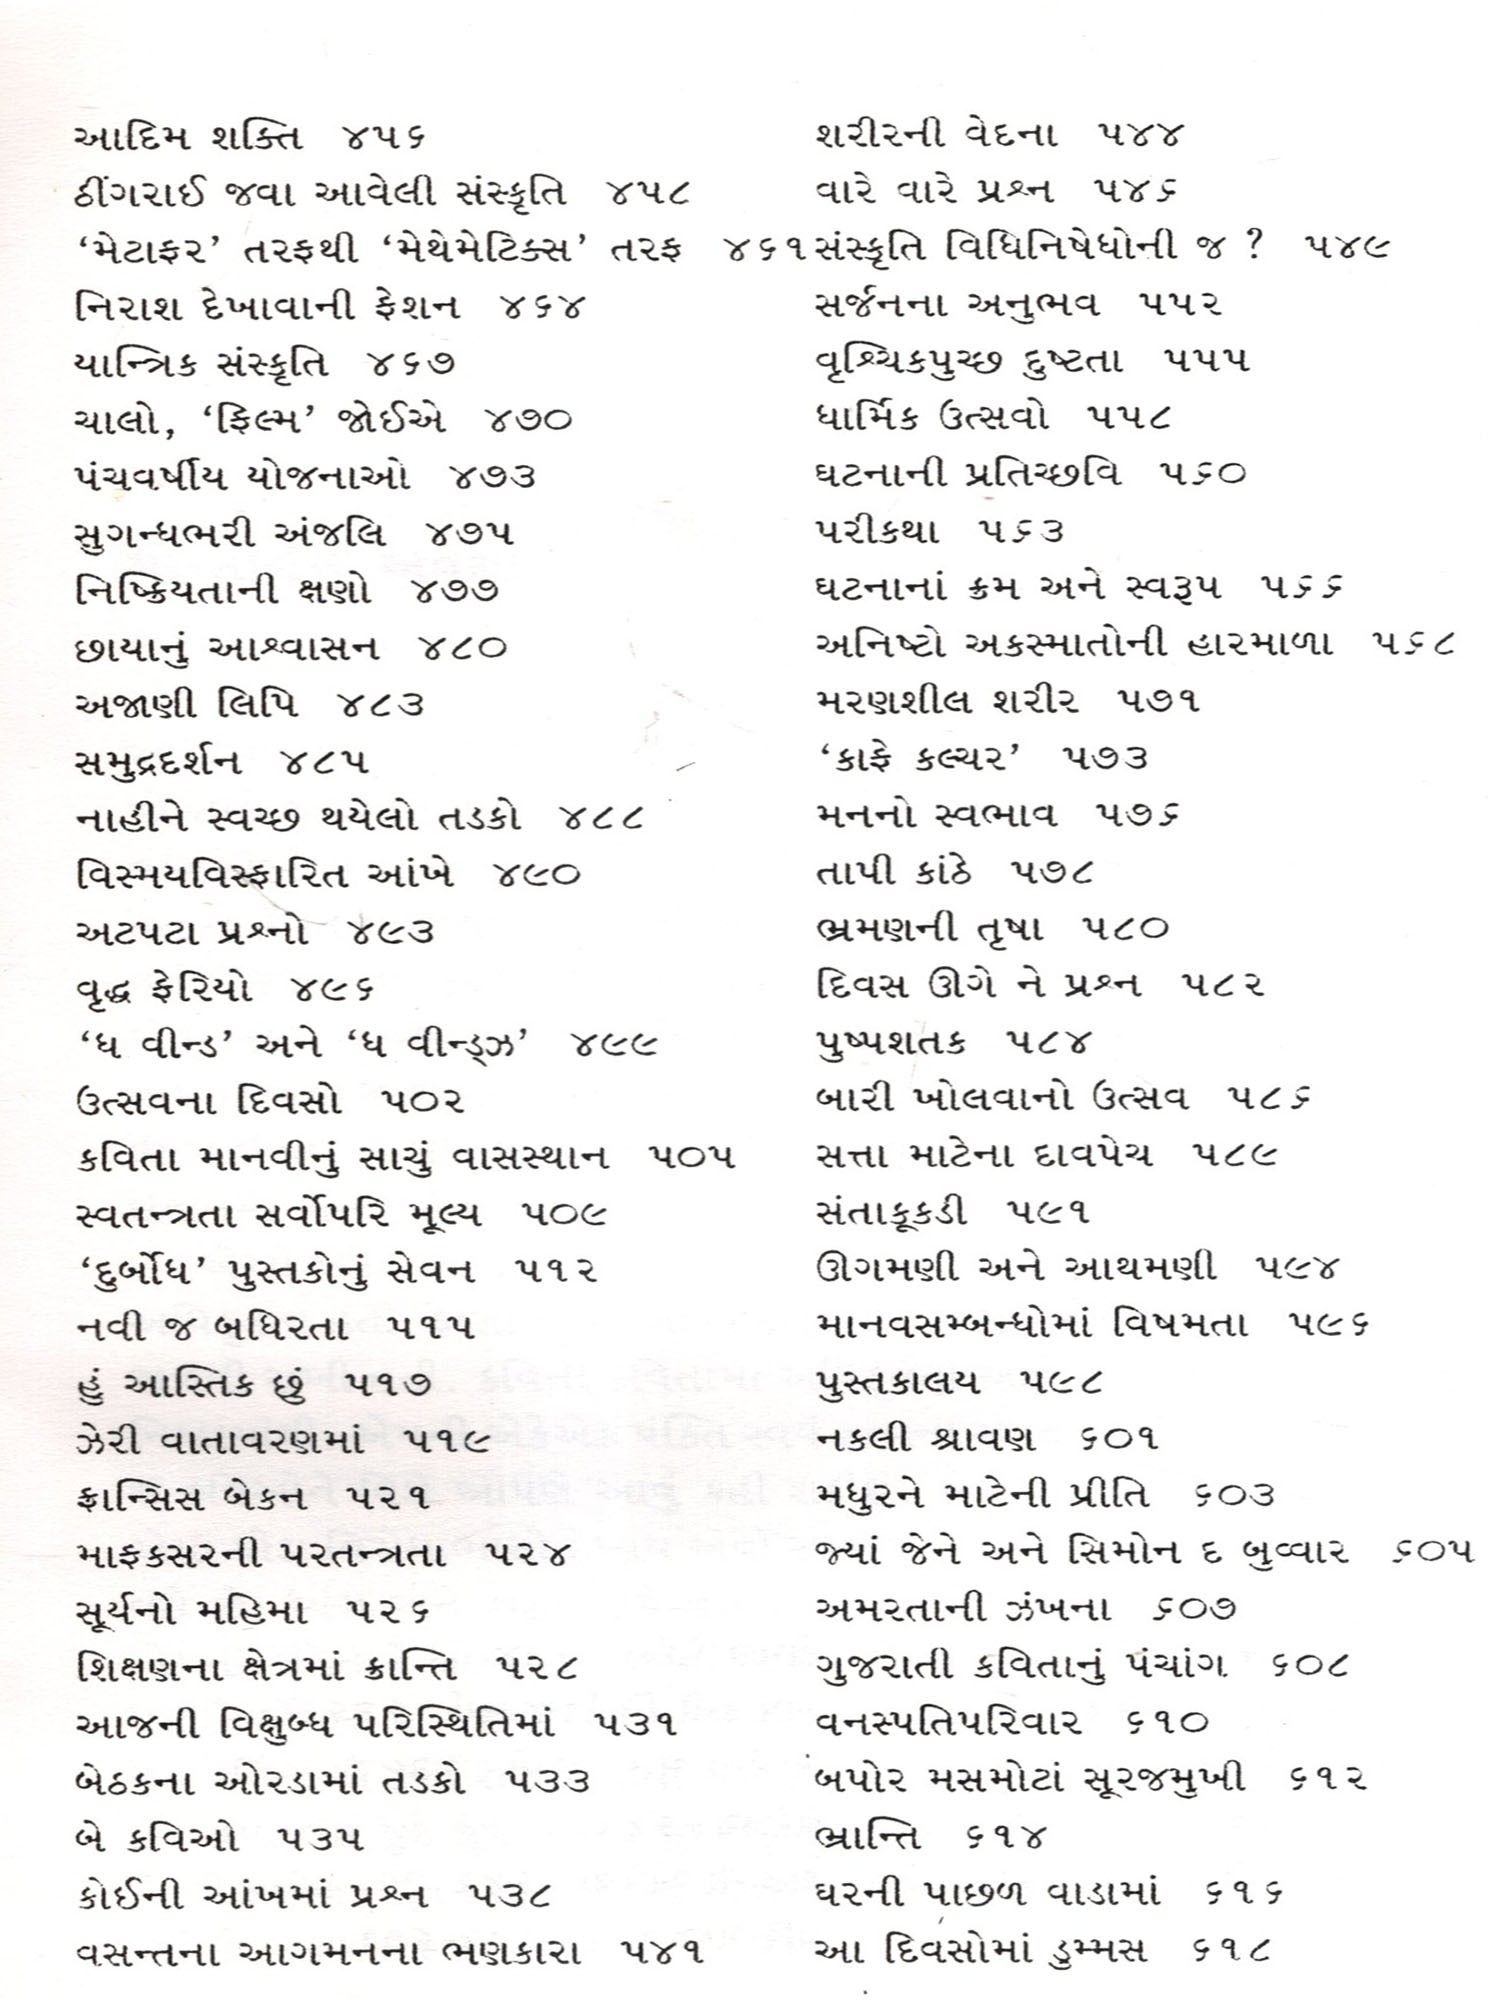 આદિમ શક્તિ ૪૫૬
ઠીંગરાઈ જવા આવેલી સંસ્કૃતિ ૪૫૮
‘મેટાફર’ તરફથી ‘મેથેમેટિક્સ’ તરફ ૪૬૧
નિરાશ દેખાવાની ફેશન ૪૬૪
યાન્ત્રિક સંસ્કૃતિ ૪૬૭
ચાલો, ‘ફિલ્મ’ જોઈએ ૪૭૦
પંચવર્ષીય યોજનાઓ ૪૭૩
સુગન્ધભરી અંજલિ ૪૭૫
નિષ્ક્રિયતાની ક્ષણો ૪૭૭
છાયાનું આશ્વાસન ૪૮૦
અજાણી લિપિ ૪૮૩
સમુદ્રદર્શન ૪૮૫
નાહીને સ્વચ્છ થયેલો તડકો ૪૮૮
વિસ્મયવિસ્ફારિત આંખે ૪૯૦
અટપટા પ્રશ્નો ૪૯૩
વૃદ્ધ ફેરિયો ૪૯૬
‘ધ વીન્ડ’ અને ‘ધ વીન્ડ્ઝ’ ૪૯૯
ઉત્સવના દિવસો ૫૦૨
કવિતા માનવીનું સાચું વાસસ્થાન ૫૦૫
સ્વતન્ત્રતા સર્વોપરિ મૂલ્ય ૫૦૯
‘દુર્બોધ’ પુસ્તકોનું સેવન ૫૧૨
નવી જ બધિરતા ૫૧૫
હું આસ્તિક છું ૫૧૭
ઝેરી વાતાવરણમાં ૫૧૯
ફ્રાન્સિસ બેકન ૫૨૧
માફકસરની પરતન્ત્રતા ૫૨૪
સૂર્યનો મહિમા ૫૨૬
શિક્ષણના ક્ષેત્રમાં ક્રાન્તિ ૫૨૮
આજની વિક્ષુબ્ધ પરિસ્થિતિમાં ૫૩૧
બેઠકના ઓરડામાં તડકો ૫૩૩
બે કવિઓ ૫૩૫
કોઈની આંખમાં પ્રશ્ન ૫૩૮
વસન્તના આગમનના ભણકારા ૫૪૧
શરીરની વેદના ૫૪૪
વારે વારે પ્રશ્ન ૫૪૬
સંસ્કૃતિ વિધિનિષેધોની જ ? ૫૪૯
સર્જનના અનુભવ ૫૫૨
વૃશ્ચિકપુચ્છ દુષ્ટતા ૫૫૫
ધાર્મિક ઉત્સવો ૫૫૮
ઘટનાની પ્રતિચ્છવિ ૫૬૦
પરીકથા ૫૬૩
ઘટનાનાં ક્રમ અને સ્વરૂપ ૫૬૬
અનિષ્ટો અકસ્માતોની હારમાળા ૫૬૮
મરણશીલ શરીર ૫૭૧
‘કાફે કલ્ચર’ ૫૭૩
મનનો સ્વભાવ ૫૭૬
તાપી કાંઠે ૫૭૮
ભ્રમણની તૃષા ૫૮૦
દિવસ ઊગે ને પ્રશ્ન ૫૮૨
પુષ્પશતક ૫૮૪
બારી ખોલવાનો ઉત્સવ ૫૮૬
સત્તા માટેના દાવપેચ ૫૮૯
સંતાકૂકડી ૫૯૧
ઊગમણી અને આથમણી ૫૯૪
માનવસમ્બન્ધોમાં વિષમતા ૫૯૬
પુસ્તકાલય ૫૯૮
નકલી શ્રાવણ ૬૦૧
મધુરને માટેની પ્રીતિ ૬૦૩
જ્યાં જેને અને સિમોન દ બુવ્વાર ૬૦૫
અમરતાની ઝંખના ૬૦૭
ગુજરાતી કવિતાનું પંચાંગ ૬૦૮
વનસ્પતિપરિવાર ૬૧૦
બપોર મસમોટાં સૂરજમુખી ૬૧૨
ભ્રાન્તિ ૬૧૪
ઘરની પાછળ વાડામાં ૬૧૬
આ દિવસોમાં ડુમ્મસ ૬૧૮